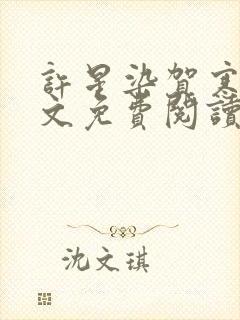 許星染賀寒
文免費閱讀
沈文琪